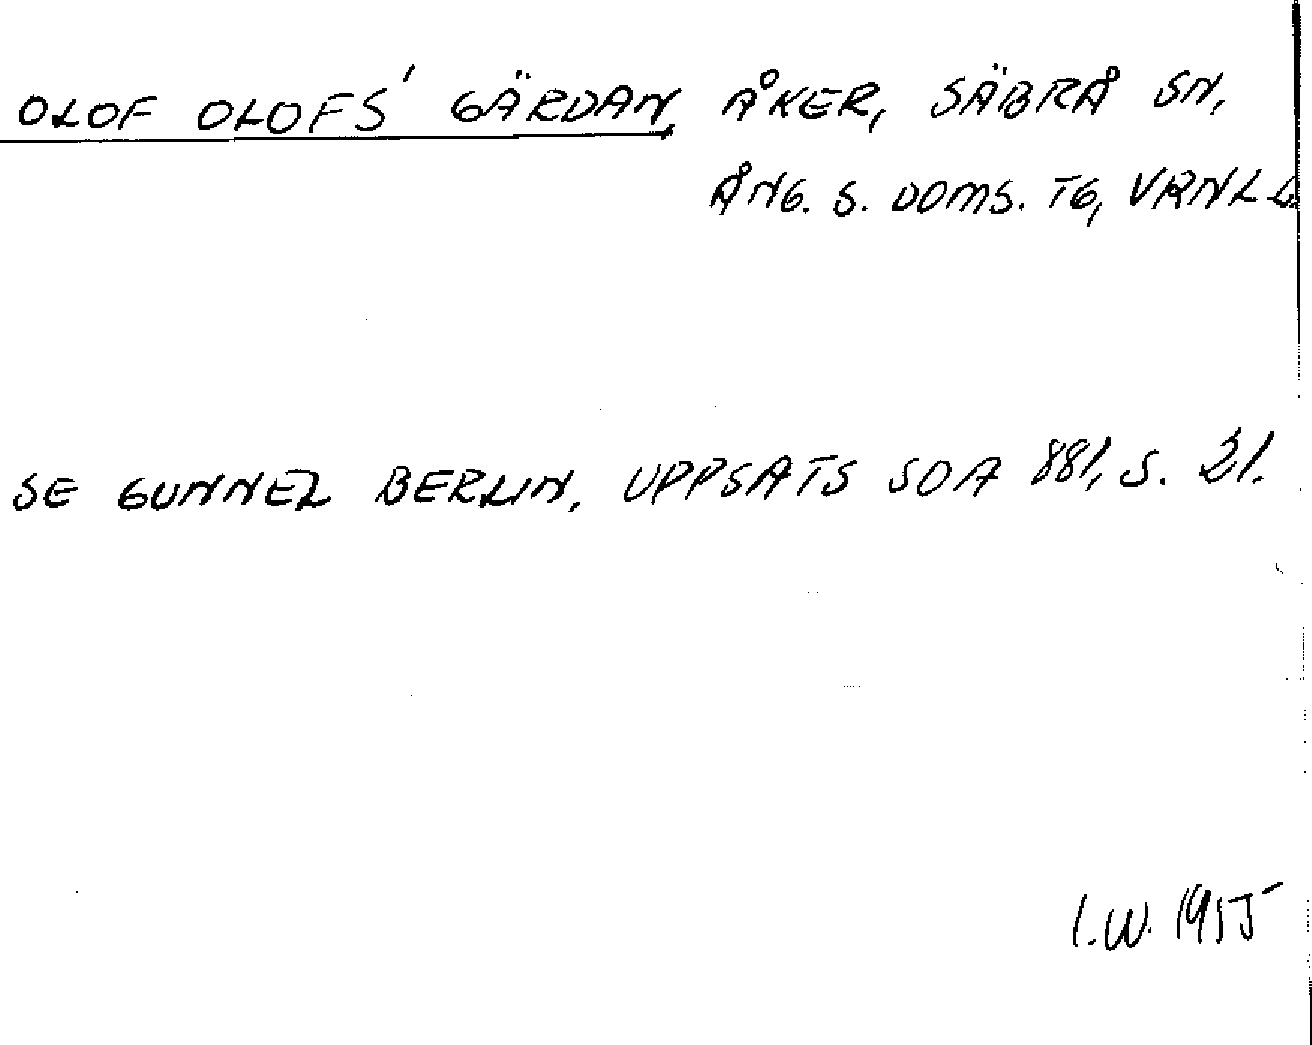 OLOF OLOFS' GÄRDAN, ÅKER, SÄBRÅ SN,
ÅNG. S. DOMS. TG, VRNL L.
SE GUNNEL BERLIN, UPPSATS SOA 881, S. 21.
I.W. 1955